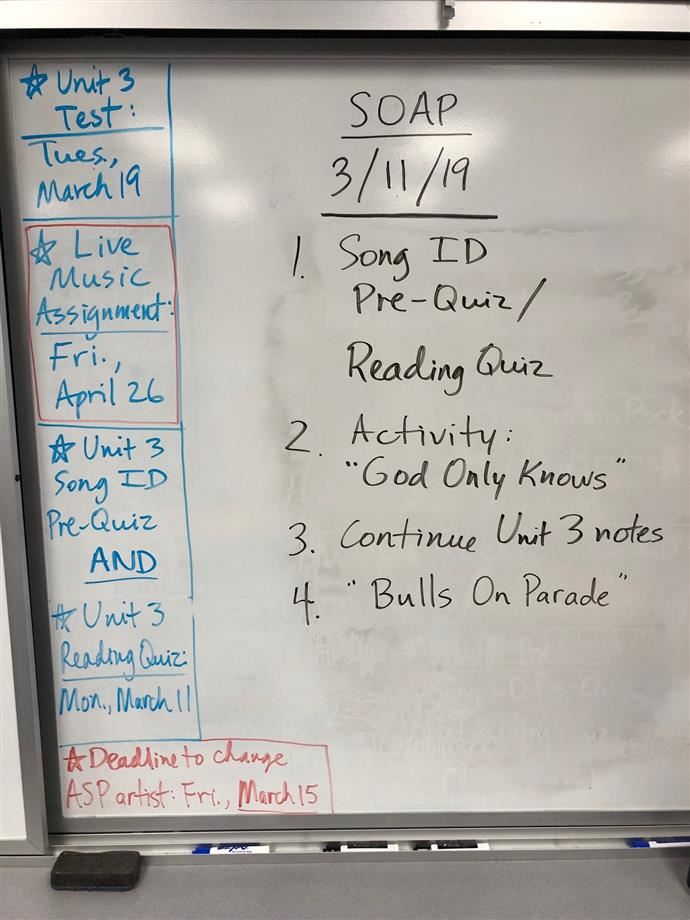 ☆ Unit 3
Test:
Tues.,
March 19
☆ Live
Music
Assignment:
Fri.,
April 26
☆ Unit 3
Song ID
Pre-Quiz
AND
☆ Unit 3
Reading Quiz:
Mon., March 11
☆ Deadline to change
ASP artist: Fri., March 15
SOAP
3/11/19
1. Song ID
Pre-Quiz/
Reading Quiz
2. Activity:
"God Only Knows"
3. Continue Unit 3 notes
4. "Bulls On Parade"